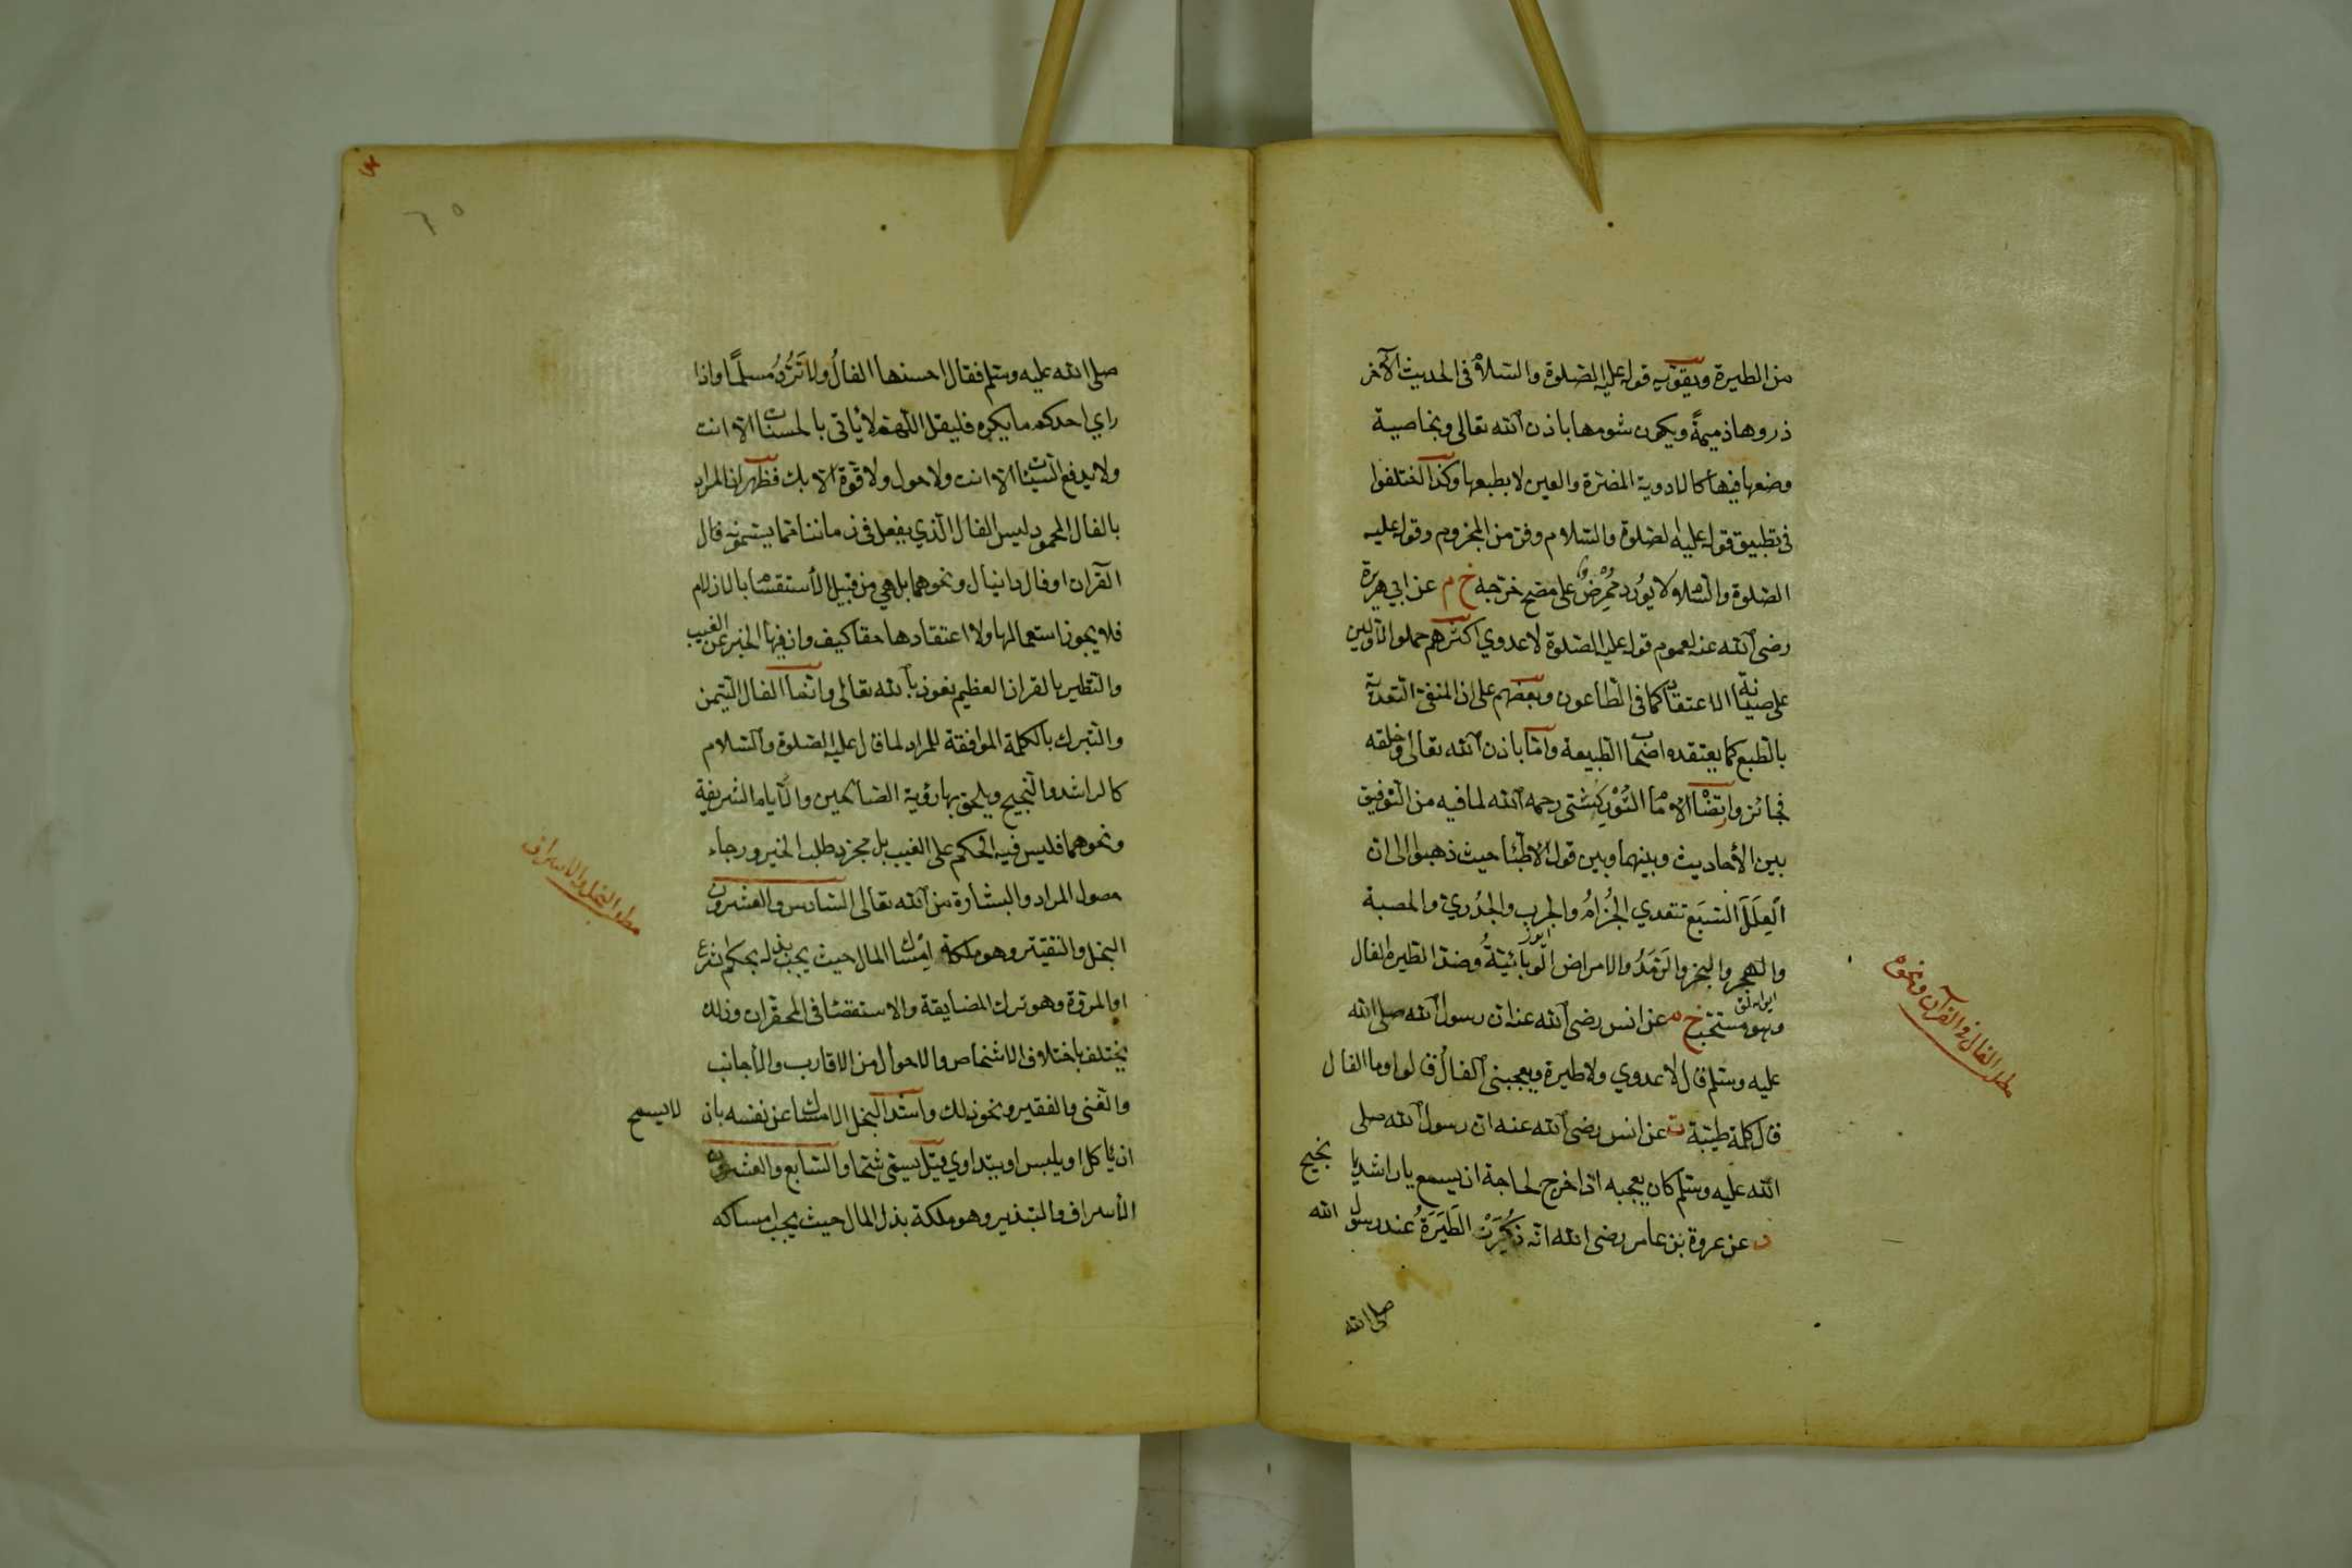 من الطيرة ويقويه قوله عليه الصلوة والسلام في الحديث الآخر
ذروها ذميمةً ويكون شومها باذن الله تعالى وبخاصية
وضعها فيها كالادوية المضرة والعين لا بطبعها وكذا اختلفوا
في تطبيق قوله عليه الصلوة والسلام وفر من المجزوم وقوله عليه
الصلوة والسلام ولا يُورد مُمْرِضٌ على مصح خرجه خ م عن ابي هريرة
رضى الله عنه لعموم قوله عليه الصلوة لا عدوي اكثرهم حملوا الاولين
على صيانة الاعتقاد كما في الطاعون وبعضهم على ان المنفى التعدية
بالطبع كما يعتقده اصحاب الطبيعة واما باذن الله تعالى وخلقه
فجائز وارتضاه الامام التُّوْرپُشْتى رحمه الله لما فيه من التوفيق
بين الأحاديث وبينهما وبين قول الاطباء حيث ذهبوا الى ان
العِلَلَ السَّبَع تتعدي الجُزامُ والجرب والجُدُريّ والحصبة
والبخر والرَمَدُ والامراض الوبائيَّةُ وضد الطيرة الفال
وهو مستحب خ م عن انس رضى الله عنه ان رسول الله صلى الله
عليه وسلم قال لا عدوي ولا طيرة ويعجبنى الفال قالوا وما الفال
قال كلمة طيبة ت عن انس رضى الله عنه ان رسول الله صلى
الله عليه وسلم كان يعجبه اذا خرج لحاجة ان يسمع يا راشد يا نجيح
د عن عروة بن عامر رضى الله انه ذُكِرَتْ الطِيَرَةُ عند رسول الله
صلى الله
مطلب الفال في القرآن ونحوه
صلى الله عليه وسلم فقال احسنها الفالُ ولا تَرُدُّ مسلمًا واذا
راي احدكم ما يكره فليقل اللهم لا يأتى بالحسنات الا انت
ولا يدفع السيئات الا انت ولا حول ولا قوة الا بك فظهر ان المراد
بالفال المحمود ليس الفال الذي يفعل في زماننا مما يسمونه فال
القرآن او فال دانيال ونحوهما بل هي من قبيل الأستقسام بالازلام
فلا يجوز استعمالها ولا اعتقادها حقا كيف وان فيها الخبر عن الغيب
والتطير بالقران العظيم نعوذ بالله تعالى وانما الفال التيمن
والتبرك بالكلمة الموافقة للمراد لما قال عليه الصلوة والسلام
كالراشد والنجيح ويلحق بها رؤية الصالحين والأيام الشريفة
ونحوهما فليس فيه الحكم على الغيب بل مجرد طلب الخير ورجاء
حصول المراد والبشارة من الله تعالى السادس والعشرون
البخل والتقيتر وهو ملكة إمساك المال حيث يجب بذله بحكم شرع
او المروة وهو ترك المضايقة والاستقصاء في المحقرات وذلك
يختلف باختلاف الاشخاص والاحوال من الاقارب والأجانب
والغنى والفقير ونحو ذلك واشد البخل الامساك عن نفسه بان لا يسمح
ان ياكل او يلبس او يتداوي قيل يسمى شحا والسابع والعشرون
الأسراف والتبذير وهو ملكة بذل المال حيث يجب امساكه
مطلب البخل والاسراف